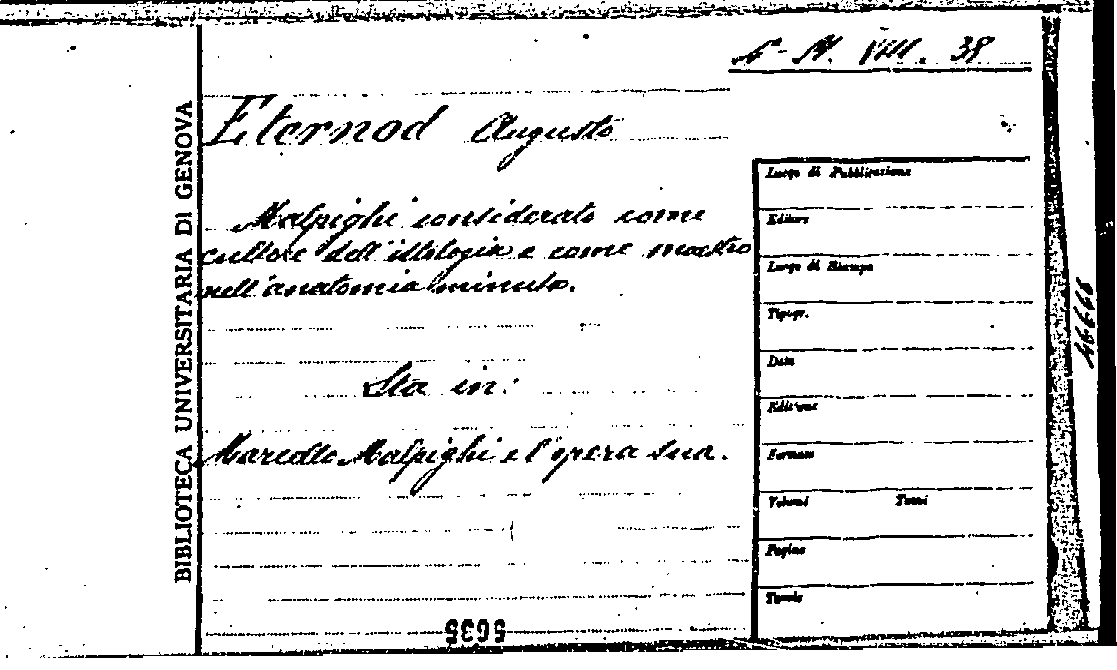 VIII. 38
BIBLIOTECA UNIVERSITARIA DI GENOVA
Eternod Augusto
Malpighi considerato come
cultore dell'istologia e come maestro
nell'anatomia minuta.
Sta in:
Marcello Malpighi e l'opera sua.
Luogo di Pubblicazione
Editore
Luogo di Stampa
Tipogr.
Data
Edizione
Formato
Volumi Tomi
Pagine
Tavole
5635